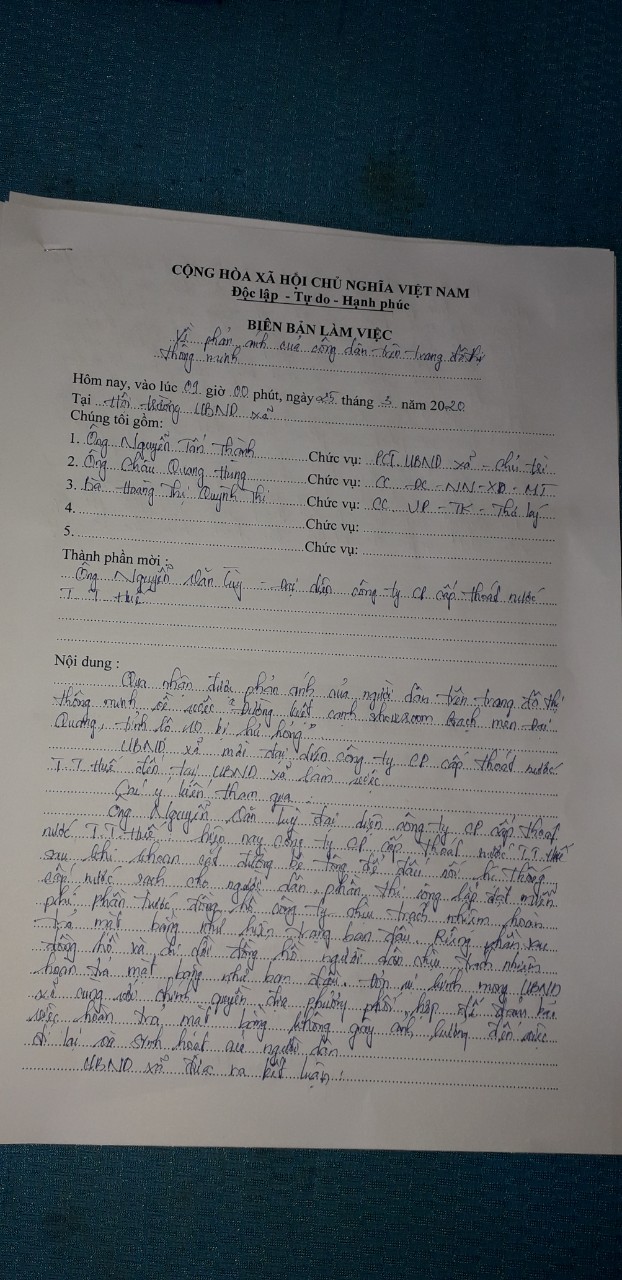 CỘNG HÒA XÃ HỘI CHỦ NGHĨA VIỆT NAM
Độc lập - Tự do - Hạnh phúc
BIÊN BẢN LÀM VIỆC
Về phản ánh của công dân trên trang đô thị
thông minh
Hôm nay, vào lúc 09 giờ 00 phút, ngày 25 tháng 3 năm 2020
Tại Hội trường UBND xã
Chúng tôi gồm:
1. Ông Nguyễn Tấn Thành Chức vụ: PCT UBND xã - chủ trì
2. Ông Châu Quang Hưng Chức vụ: CC ĐC-NN-XD-MT
3. Bà Hoàng Thị Quỳnh Thi Chức vụ: CC VP-TK- Thư ký
4. Chức vụ:
5. Chức vụ:
Thành phần mời :
Ông Nguyễn Văn Tùy - Đại diện công ty CP cấp thoát nước
T.T Huế
Nội dung :
Qua nhận được phản ánh của người dân trên trang đô thị
thông minh về việc "Đường kiệt cạnh showroom
tỉnh lộ 10 bị hư hỏng".
UBND xã mời đại diện công ty CP cấp thoát nước
T.T Huế đến tại UBND xã làm việc
Các ý kiến tham gia:
Ông Nguyễn Văn Tuỳ đại diện công ty CP cấp thoát
nước T.T.Huế: hiện nay công ty CP cấp thoát nước T.T.Huế
sau khi khoan cắt đường bê tông để đấu nối hệ thống
cấp nước sạch cho người dân, phần thi công lắp đặt miễn
phí phần trước đồng hồ công ty chịu trách nhiệm hoàn
trả mặt bằng như hiện trạng ban đầu. Riêng phần sau
đồng hồ và di dời đồng hồ người dân chịu trách nhiệm
hoàn trả mặt bằng như ban đầu. Đơn vị kính mong UBND
xã cùng với chính quyền địa phương phối hợp để đảm bảo
việc hoàn trả mặt bằng không gây ảnh hưởng đến việc
đi lại và sinh hoạt của người dân
UBND xã đưa ra kết luận: